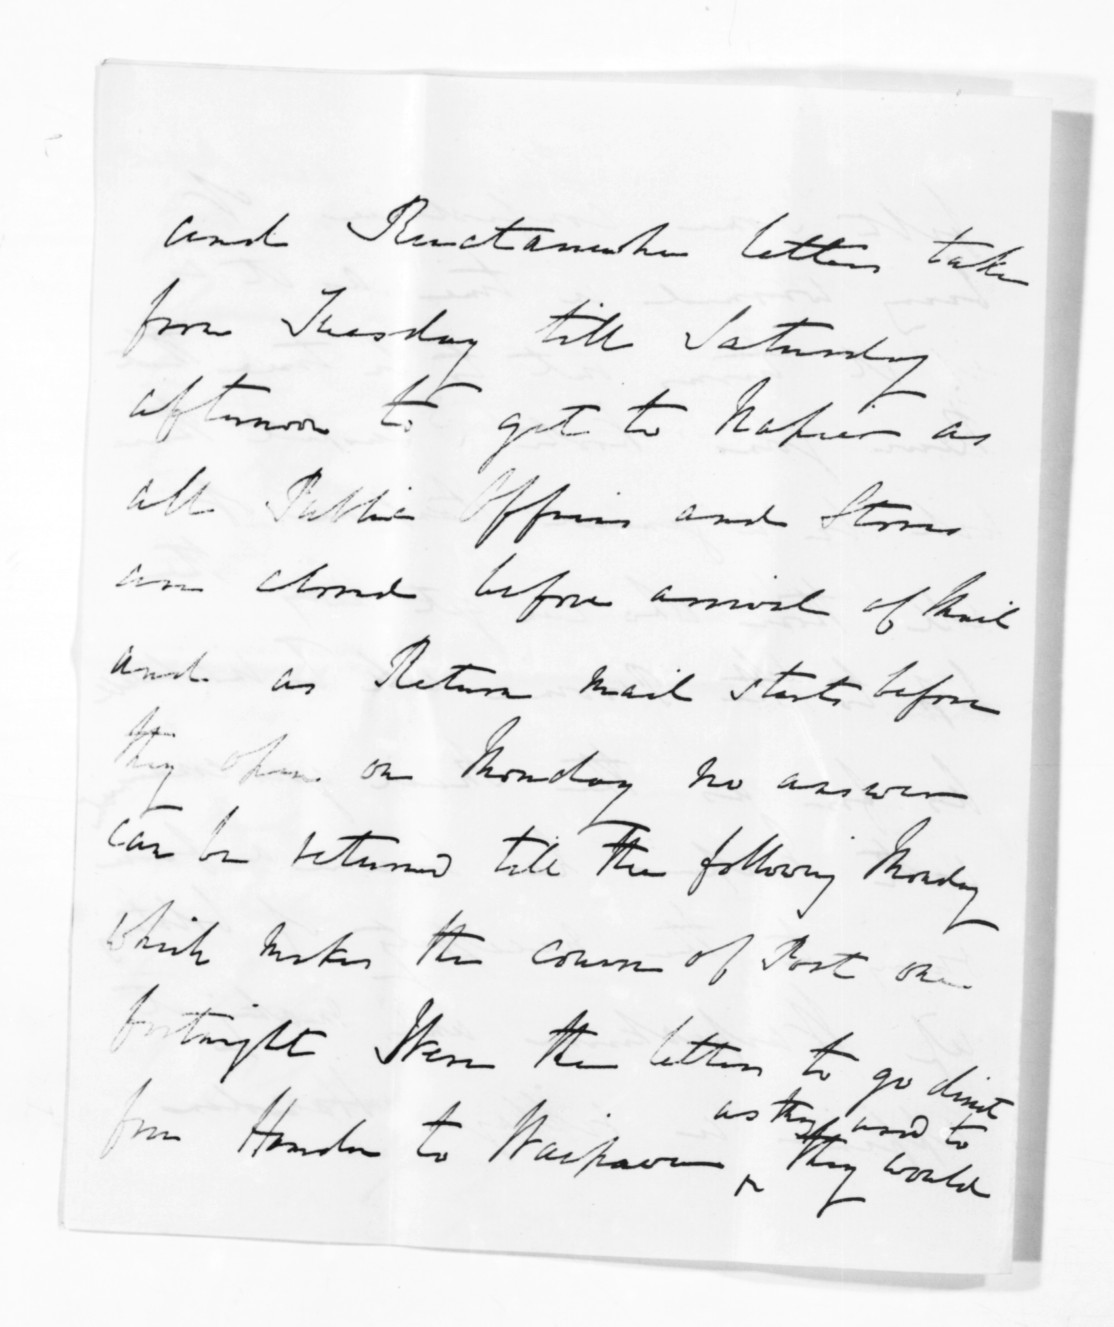 and Ruataniwha letters take
from Tuesday till Saturday
afternoon to get to Napier as
all Public Offices and Stores
are closed before arrival of Mail
and as Return Mail starts before
they open on Monday no answer
can be returned till the following Monday
which makes the course of Post one
fortnight Were the letters to go direct
as they used to
from Hampden to Waipawa ^ they would